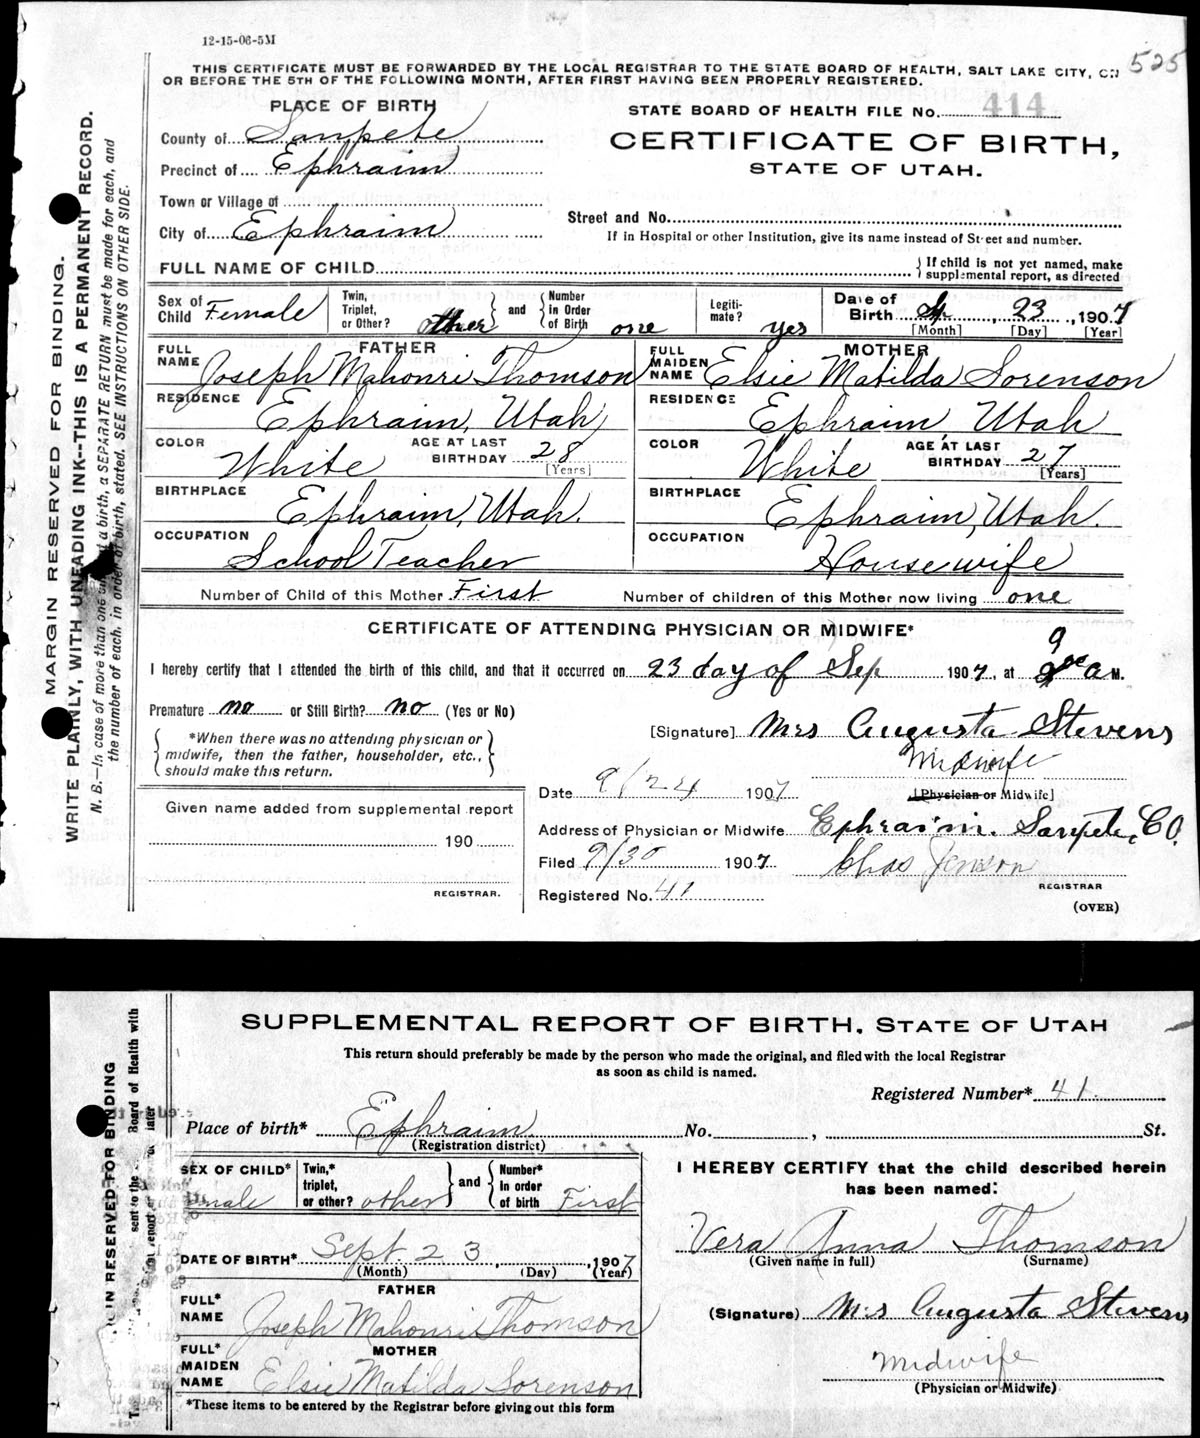 12-15-06-5M
525
THIS CERTIFICATE MUST BE FORWARDED BY THE LOCAL REGISTRAR TO THE STATE BOARD OF HEALTH, SALT LAKE CITY, ON
OR BEFORE THE 5TH OF THE FOLLOWING MONTH, AFTER FIRST HAVING BEEN PROPERLY REGISTERED.
MARGIN RESERVED FOR BINDING.
WRITE PLAINLY, WITH UNFADING INK--THIS IS A PERMANENT RECORD.
N. B.—In case of more than one child at a birth, a SEPARATE RETURN must be made for each, and
the number of each, in order of birth, stated. SEE INSTRUCTIONS ON OTHER SIDE.
PLACE OF BIRTH
County of Sanpete
Precinct of Ephraim
Town or Village of
City of Ephraim
STATE BOARD OF HEALTH FILE No. 414
CERTIFICATE OF BIRTH,
STATE OF UTAH.
Street and No.
If in Hospital or other Institution, give its name instead of Street and number.
FULL NAME OF CHILD
If child is not yet named, make
supplemental report, as directed
Sex of Child Female
Twin, Triplet, or Other? other and Number in Order of Birth one
Legitimate? yes
Date of Birth Sep, 23, 1907
[Month] [Day] [Year]
FATHER
FULL NAME Joseph Mahonri Thomson
RESIDENCE Ephraim, Utah
COLOR White AGE AT LAST BIRTHDAY 28 [Years]
BIRTHPLACE Ephraim, Utah.
OCCUPATION School Teacher
MOTHER
FULL MAIDEN NAME Elsie Matilda Sorenson
RESIDENCE Ephraim, Utah
COLOR White AGE AT LAST BIRTHDAY 27 [Years]
BIRTHPLACE Ephraim, Utah.
OCCUPATION Housewife
Number of Child of this Mother First Number of children of this Mother now living one
CERTIFICATE OF ATTENDING PHYSICIAN OR MIDWIFE*
I hereby certify that I attended the birth of this child, and that it occurred on 23 day of Sep 1907, at 9 a M.
Premature no or Still Birth? no (Yes or No)
*When there was no attending physician or
midwife, then the father, householder, etc.,
should make this return.
[Signature] Mrs Augusta Stevens
Midwife
[Physician or Midwife]
Date 9/24 1907
Address of Physician or Midwife Ephraim. Sanpete, CO.
Filed 9/30 1907 Chas Jenson
REGISTRAR
Registered No. 41
(OVER)
Given name added from supplemental report
190
REGISTRAR.
SUPPLEMENTAL REPORT OF BIRTH, STATE OF UTAH
This return should preferably be made by the person who made the original, and filed with the local Registrar
as soon as child is named.
Registered Number* 41.
Place of birth* Ephraim No. , St.
(Registration district)
SEX OF CHILD* Female
Twin,* triplet, or other? other and Number* in order of birth First
DATE OF BIRTH* Sept 23, 1907
(Month) (Day) (Year)
FATHER
FULL* NAME Joseph Mahonri Thomson
MOTHER
FULL* MAIDEN NAME Elsie Matilda Sorenson
*These items to be entered by the Registrar before giving out this form
I HEREBY CERTIFY that the child described herein
has been named:
Vera Anna Thomson
(Given name in full) (Surname)
(Signature) Mrs Augusta Stevens
Midwife
(Physician or Midwife)
IN RESERVED FOR BINDING
sent to the Board of Health with
report later